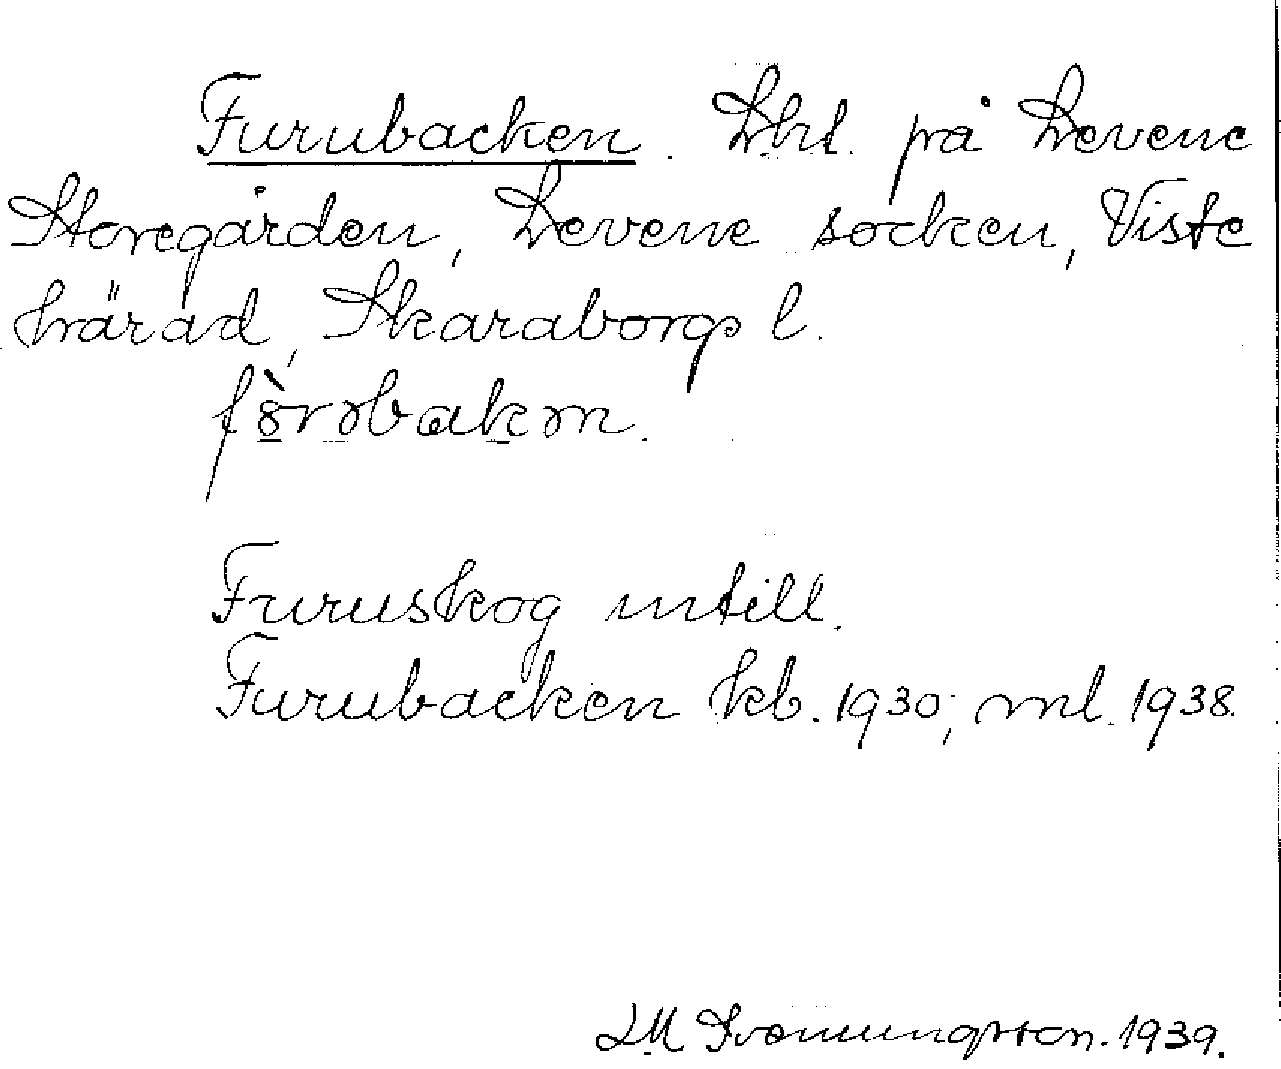 Furubacken. Lht. på Levene
Storegården, Levene socken, Viste
härad, Skaraborgs l.
Furuskog intill.
Furubacken kb. 1930; ml. 1938.
LM Svenungsson. 1939.